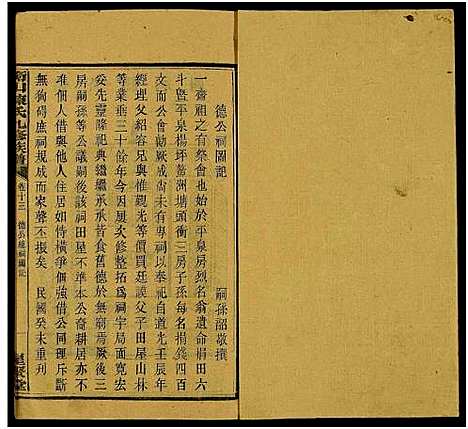 德公祠圖記
嗣孫韶敬撰
一齋祖之有祭會也始於平泉房烈名翁遺命捐田六
斗暨平泉楊坪鰲洲塘頭衝三房子孫每名捐錢四百
文而公會大厥成尚未有專祠以奉祀自道光壬辰
經理父紹容兄與惟觀光等價父子田屋山林
等業垂三十餘年今改大修整拓爲祠宇局面寬宏
妥先靈隆祀典繼繼承承昔食舊德於無窮焉厥後三
房嗣孫等公議嗣後該祠田屋不準本公奇耕居亦不
准個人借與他人住居如恃橫爭個強借公同理斥斷
無狥碍庶祠規而家聲不振矣　民國癸未重刊
氏九修族譜
卷十三
德公祠圖記